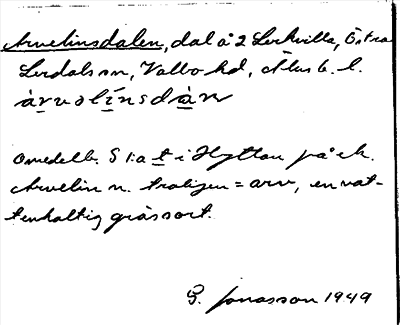 Arvelinsdalen, dal å 2 Lerkvilla, Östra
Lerdals sn, Valbo hd, Älvsb. l.
àrvəlínsdàn
Omedelb. S t:a t i Hyttan på ek.
Arvelin n. troligen = arv, en vat-
tenhaltig grässort.
G. Jonasson 1949